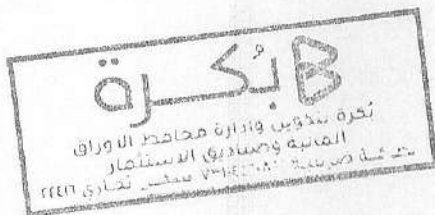 بُكرة
بُكرة لتكوين وإدارة محافظ الاوراق
المالية وصناديق الاستثمار
سجل تجاري ٢٢٤١٦